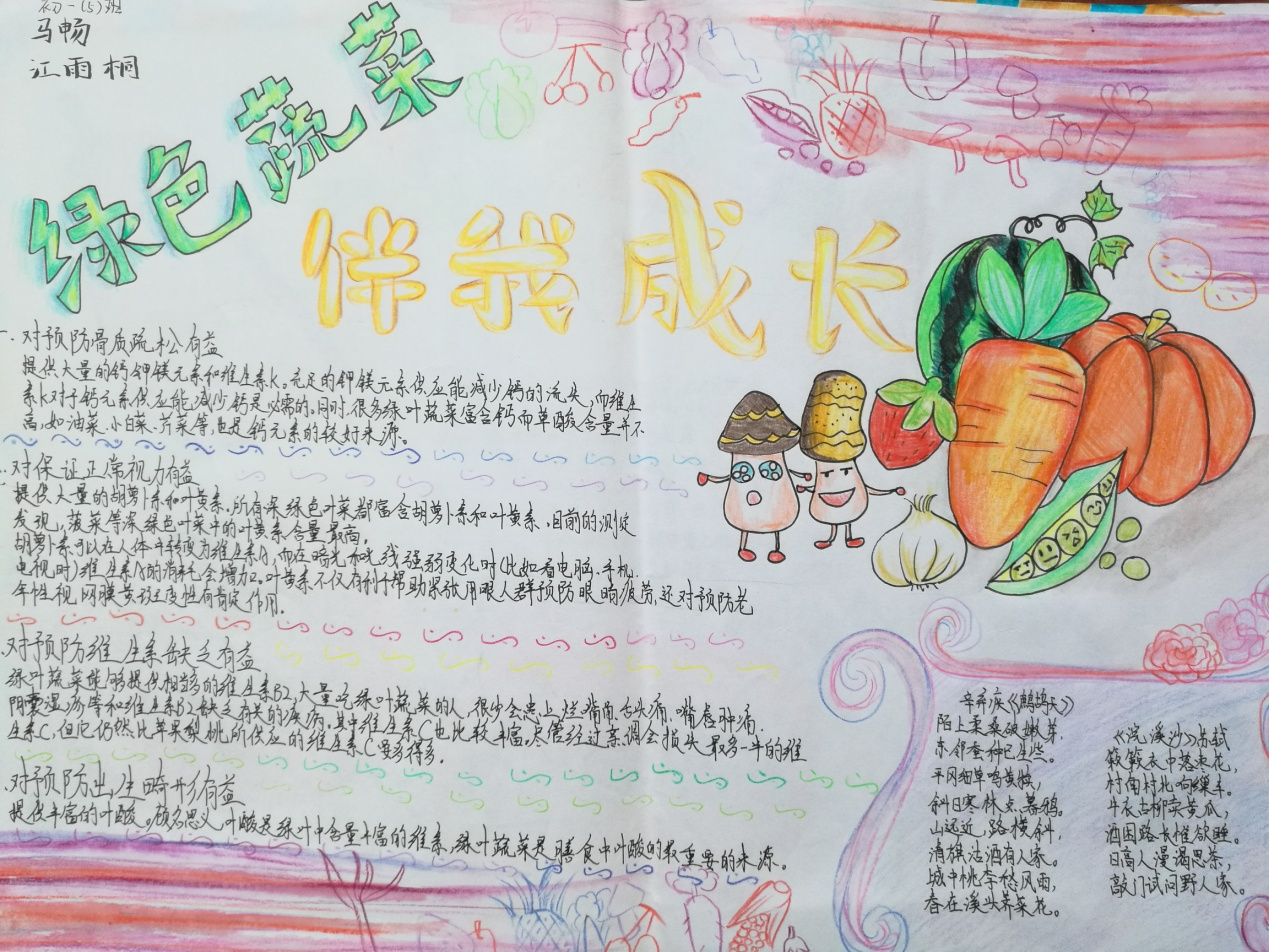 初一(5)班
马畅
江雨桐
绿色蔬菜
伴我成长
一.对预防骨质疏松有益
提供大量的钙钾镁元素和维生素K。充足的钾镁元素供应能减少钙的流失,而维生
素K对于钙元素供应能减少钙是必需的。同时,很多绿叶蔬菜富含钙而草酸含量并不
高,如油菜.小白菜.芹菜等,也是钙元素的较好来源。
对保证正常视力有益
提供大量的胡萝卜素和叶黄素.所有深绿色叶菜都富含胡萝卜素和叶黄素.目前的测定
发现,菠菜等深绿色叶菜中的叶黄素含量最高。
胡萝卜素可以在人体中转变为维生素A,而在暗光和光线强弱变化时(比如看电脑.手机.
电视时)维生素A的消耗会增加。叶黄素不仅有利于帮助紧张用眼人群预防眼睛疲劳,还对预防老
年性视网膜黄斑变性有肯定作用.
对预防维生素缺乏有益
绿叶蔬菜能够提供相当多的维生素B2,大量吃绿叶蔬菜的人,很少会患上烂嘴角.舌头痛.嘴唇肿痛.
阴囊湿疹等和维生素B2缺乏有关的疾病。其中维生素C也比较丰富。尽管经过烹调会损失最多一半的维
生素C,但它仍然比苹果梨桃所供应的维生素C要多得多.
对预防出生畸形有益
提供丰富的叶酸。顾名思义,叶酸是绿叶中含量丰富的维素,绿叶蔬菜是膳食中叶酸的最重要的来源。
辛弃疾《鹧鸪天》
陌上柔桑破嫩芽,
东邻蚕种已生些。
平冈细草鸣黄犊,
斜日寒林点暮鸦。
山远近,路横斜,
青旗沽酒有人家。
城中桃李愁风雨,
春在溪头荠菜花。
《浣溪沙》苏轼
簌簌衣巾落枣花,
村南村北响缫车。
牛衣古柳卖黄瓜,
酒困路长惟欲睡。
日高人漫渴思茶,
敲门试问野人家。